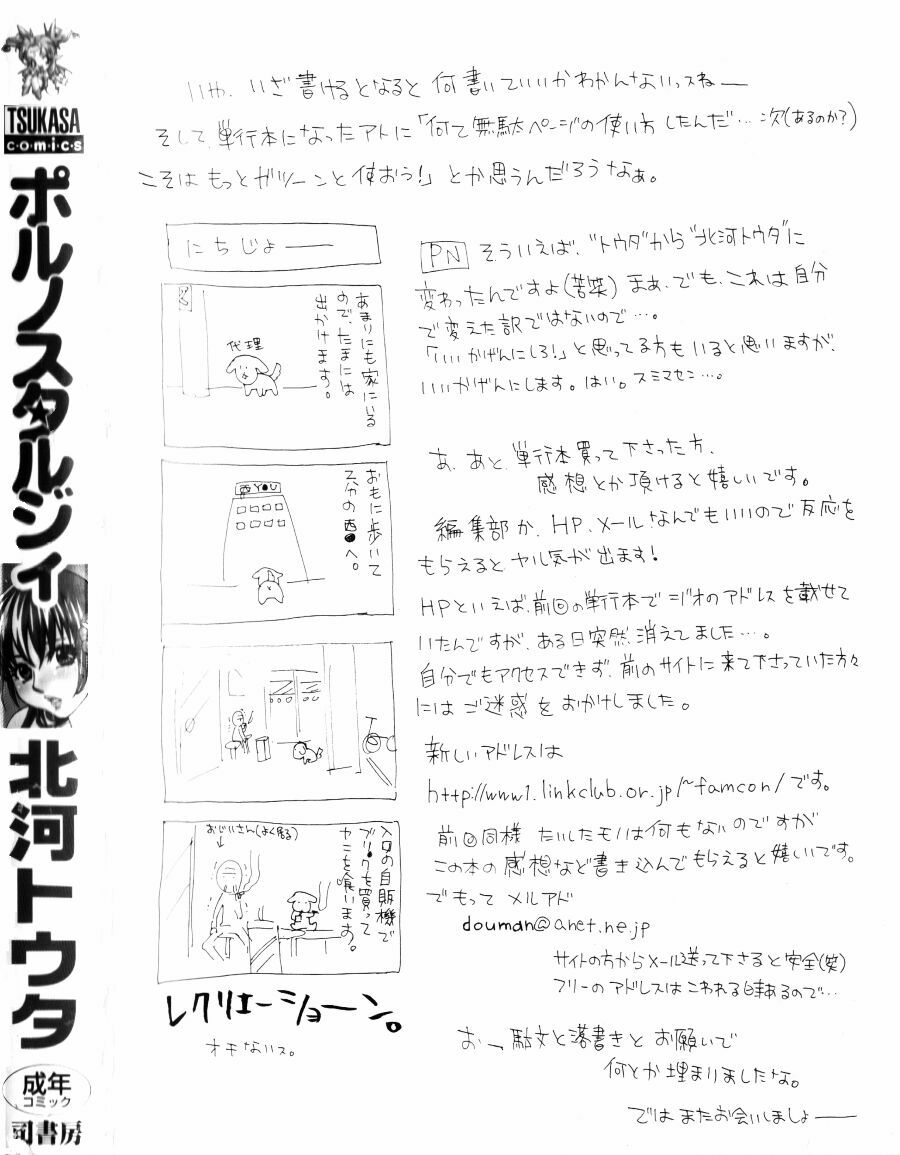 TSUKASA
comics
ポルノスタルジィ
北河トウタ
成年
コミック
司書房
いや、いざ書けるとなると何書いていいかわかんないっスねー
そして単行本になったアトに「何て無駄ページの使い方したんだ…次(あるのか?)
こそはもっとガツーンと使おう!」とか思うんだろうなぁ。
にちじょー
あまりにも家にいる
ので、たまには
出かけます。
代理
おもに歩いて
2分の西●へ。
西YOU
入口の自販機で
ブリ●クを買って
ヤニを喰います。
おじいさん(よく居る)
レクリエーショーン。
オチないス。
PN そういえば、"トウタ"から"北河トウタ"に
変わったんですよ(苦笑)まぁ、でも、これは自分
で変えた訳ではないので…。
「いいかげんにしろ!」と思ってる方もいると思いますが、
いいかげんにします。はい。スミマセン…。
あ、あと、単行本買って下さった方、
感想とか頂けると嬉しいです。
編集部か、HP、メールなんでもいいので反応を
もらえるとヤル気が出ます!
HPといえば、前回の単行本でジオのアドレスを載せて
いたんですが、ある日突然消えてました…。
自分でもアクセスできず、前のサイトに来て下さっていた方々
にはご迷惑をおかけしました。
新しいアドレスは
http://www1.linkclub.or.jp/~famcon/です。
前回同様たいしたモノは何もないのですが
この本の感想など書き込んでもらえると嬉しいです。
でもってメルアド
douman@anet.ne.jp
サイトの方からメール送って下さると安全(笑)
フリーのアドレスはこわれる時あるので…
おー、駄文と落書きとお願いで
何とか埋まりましたな。
ではまたお会いしましょー